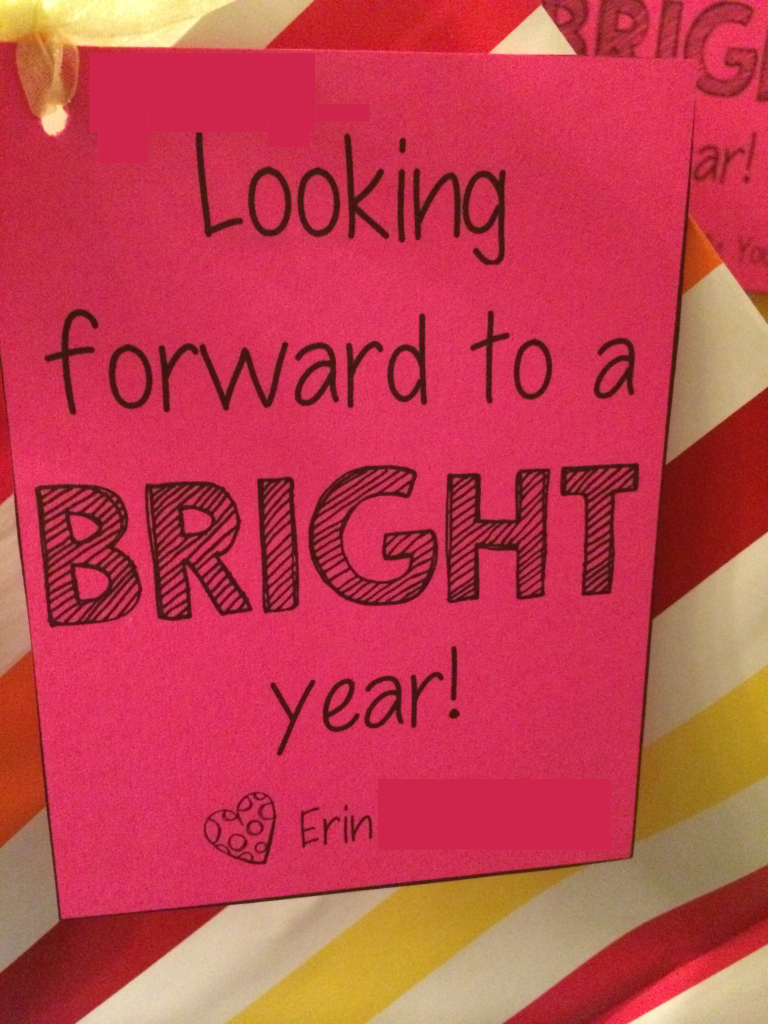 Looking
forward to a
BRIGHT
year!
Erin
BRIG
ar!
You